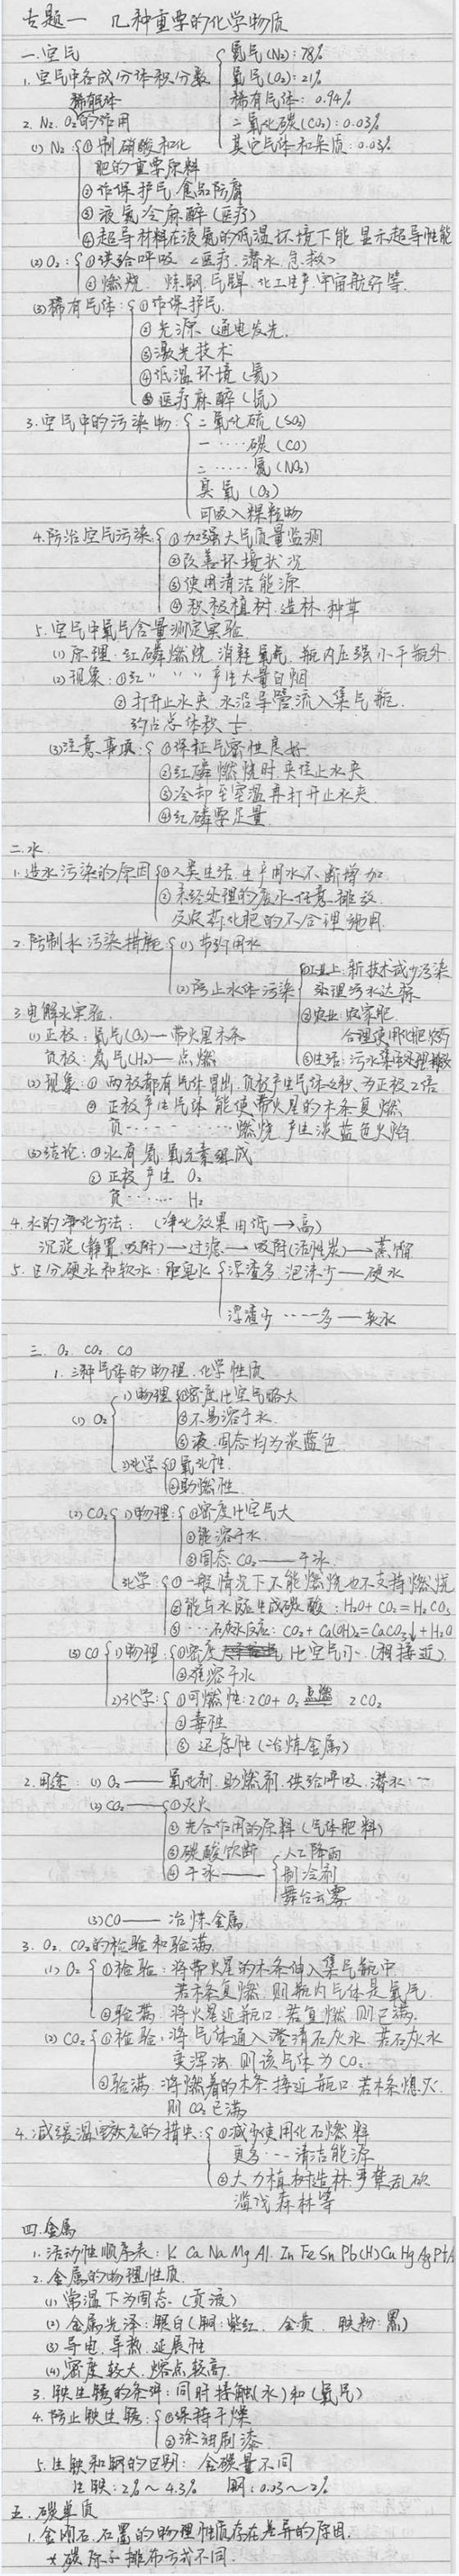 专题一 几种重要的化学物质
一.空气
1.空气中各成分体积分数 氮气(N₂): 78%
氧气(O₂): 21%
稀有气体: 0.94%
二氧化碳(CO₂): 0.03%
其它气体和杂质: 0.03%
稀有气体
2. N₂. O₂的作用
(1) N₂ ①制硝酸和化
肥的重要原料
②作保护气 食品防腐
③液氮冷麻醉(医疗)
④超导材料在液氮的低温环境下能显示超导性能
(2) O₂: ①供给呼吸 <医疗.潜水.急救>
②燃烧. 炼钢.气焊.化工生产.宇宙航行等.
(3)稀有气体: ①作保护气.
②光源(通电发光.
③激光技术
④低温环境(氦)
⑤医疗麻醉(氙)
3.空气中的污染物: 二氧化硫(SO₂)
一……碳(CO)
二……氮(NO₂)
臭氧(O₃)
可吸入颗粒物
4.防治空气污染 ①加强大气质量监测
②改善环境状况
③使用清洁能源
④积极植树.造林.种草
5.空气中氧气含量测定实验
(1)原理:红磷燃烧.消耗氧气.瓶内压强小于瓶外.
(2)现象:①红〃 〃 〃 产生大量白烟
②打开止水夹.水沿导管流入集气瓶.
约占总体积 1/5
(3)注意事项: ①保证气密性良好.
②红磷燃烧时.夹住止水夹
③冷却至室温再打开止水夹.
④红磷要足量.
二.水
1.造水污染的原因 ①人类生活.生产用水不断增加
②未经处理的废水任意排放.
及农药化肥的不合理施用.
2.防制水污染措施 (1)节约用水
(2)防止水体污染 ①工业上.新技术减少污染
处理污水达标
②农业:农家肥.
合理使用化肥农药
③生活:污水集中处理排放
3.电解水实验.
(1)正极:氧气(O₂)—带火星木条
负极:氢气(H₂)—点燃
(2)现象:①两极都有气体冒出.负极产生气体体积.为正极2倍
②正极产生气体能使带火星的木条复燃
负……燃烧.产生淡蓝色火焰
(3)结论:①水有氢氧元素组成
②正极产生 O₂
负…… H₂
4.水的净化方法: (净化效果由低→高)
沉淀(静置.吸附)→过滤→吸附(活性炭)→蒸馏
5.区分硬水和软水:肥皂水 浮渣多.泡沫少—硬水
浮渣少……多—软水
三. O₂. CO₂. CO
1.三种气体的物理.化学性质
(1) O₂ 1)物理 ①密度比空气略大
②不易溶于水.
③液.固态均为淡蓝色
2)化学 ①氧化性.
②助燃性.
(2) CO₂ 1)物理: ①密度比空气大
②能溶于水.
③固态CO₂——干冰.
化学 ①一般情况下不能燃烧也不支持燃烧
②能与水反应生成碳酸: H₂O+CO₂=H₂CO₃
③……石灰水反应: CO₂+Ca(OH)₂=CaCO₃↓+H₂O
(3) CO 1)物理: ①密度比空气小.(相接近)
②难溶于水
2)化学: ①可燃性: 2CO+O₂ 点燃 2CO₂
②毒性
③还原性(冶炼金属)
2.用途: (1) O₂——氧化剂.助燃剂.供给呼吸.潜水…
(2) CO₂—— ①灭火
②光合作用的原料(气体肥料)
③碳酸饮料
④干冰—— 人工降雨
制冷剂
舞台云雾
(3)CO——冶炼金属.
3. O₂. CO₂的检验和验满.
(1) O₂ ①检验:将带火星的木条伸入集气瓶中.
若木条复燃.则瓶内气体是氧气.
②验满.将火星近瓶口.若复燃.则已满.
(2) CO₂ ①检验:将气体通入澄清石灰水.若石灰水
变浑浊.则该气体为CO₂.
②验满.将燃着的木条.接近瓶口.若木条熄灭.
则CO₂已满
4.减缓温室效应的措失: ①减少使用化石燃料
更多…清洁能源
②大力植树造林.严禁乱砍
滥伐森林等
四.金属
1.活动性顺序表: K Ca Na Mg Al. Zn Fe Sn Pb(H)Cu Hg Ag Pt A
2.金属的物理性质.
(1)常温下为固态.(贡液)
(2)金属光泽:银白(铜:紫红. 金黄. 铁粉:黑)
(3)导电.导热.延展性
(4)密度较大.熔点较高.
3.铁生锈的条件:同时接触(水)和(氧气)
4.防止铁生锈: ①保持干燥
②涂油刷漆.
5.生铁和钢的区别: 含碳量不同
生铁: 2%~4.3% 钢: 0.03~2%
五.碳单质
1.金刚石.石墨的物理性质存在差异的原因.
碳原子排布方式不同.